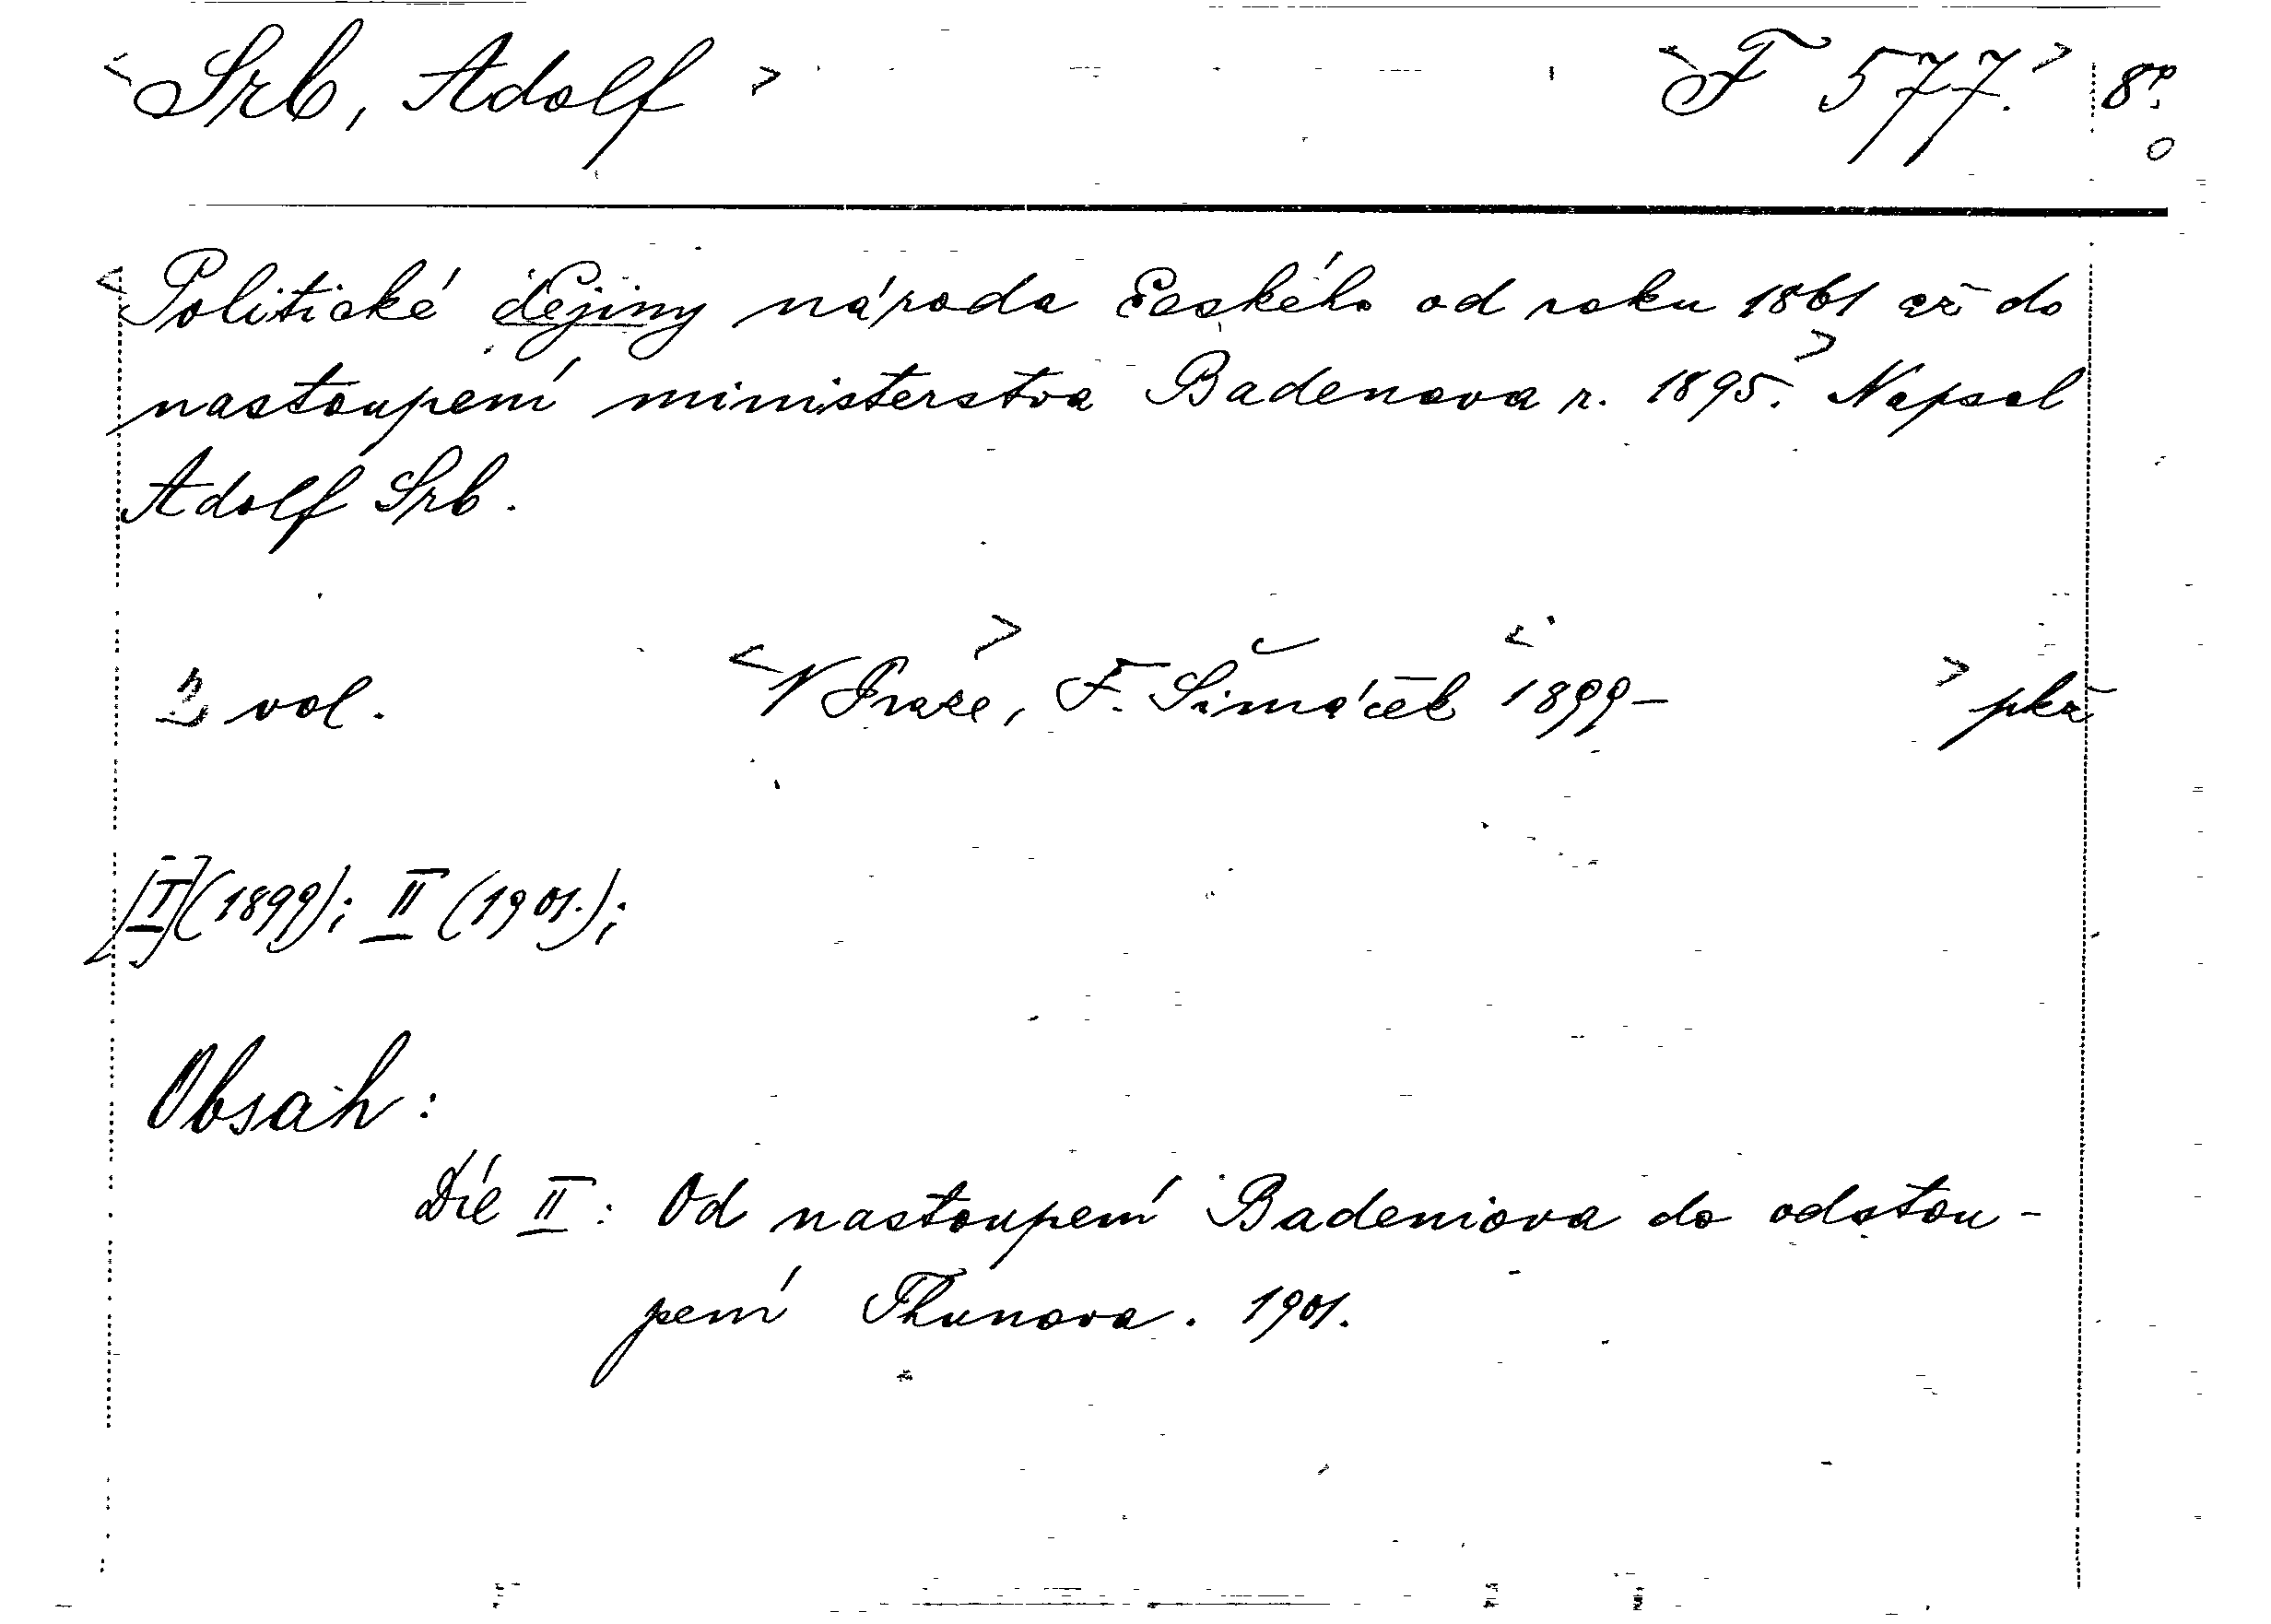 <Srb, Adolf> <F 577.> 8°.
<Politické dějiny národa českého od roku 1861 až do
nastoupení ministerstva Badenova r. 1895.> Napsal
Adolf Srb.
2 vol. <V Praze>, F. Šimáček <1899- > pkž
[I](1899); II (1901.);
Obsah:
Díl II: Od nastoupení Badeniova do odstou-
pení Thunova. 1901.